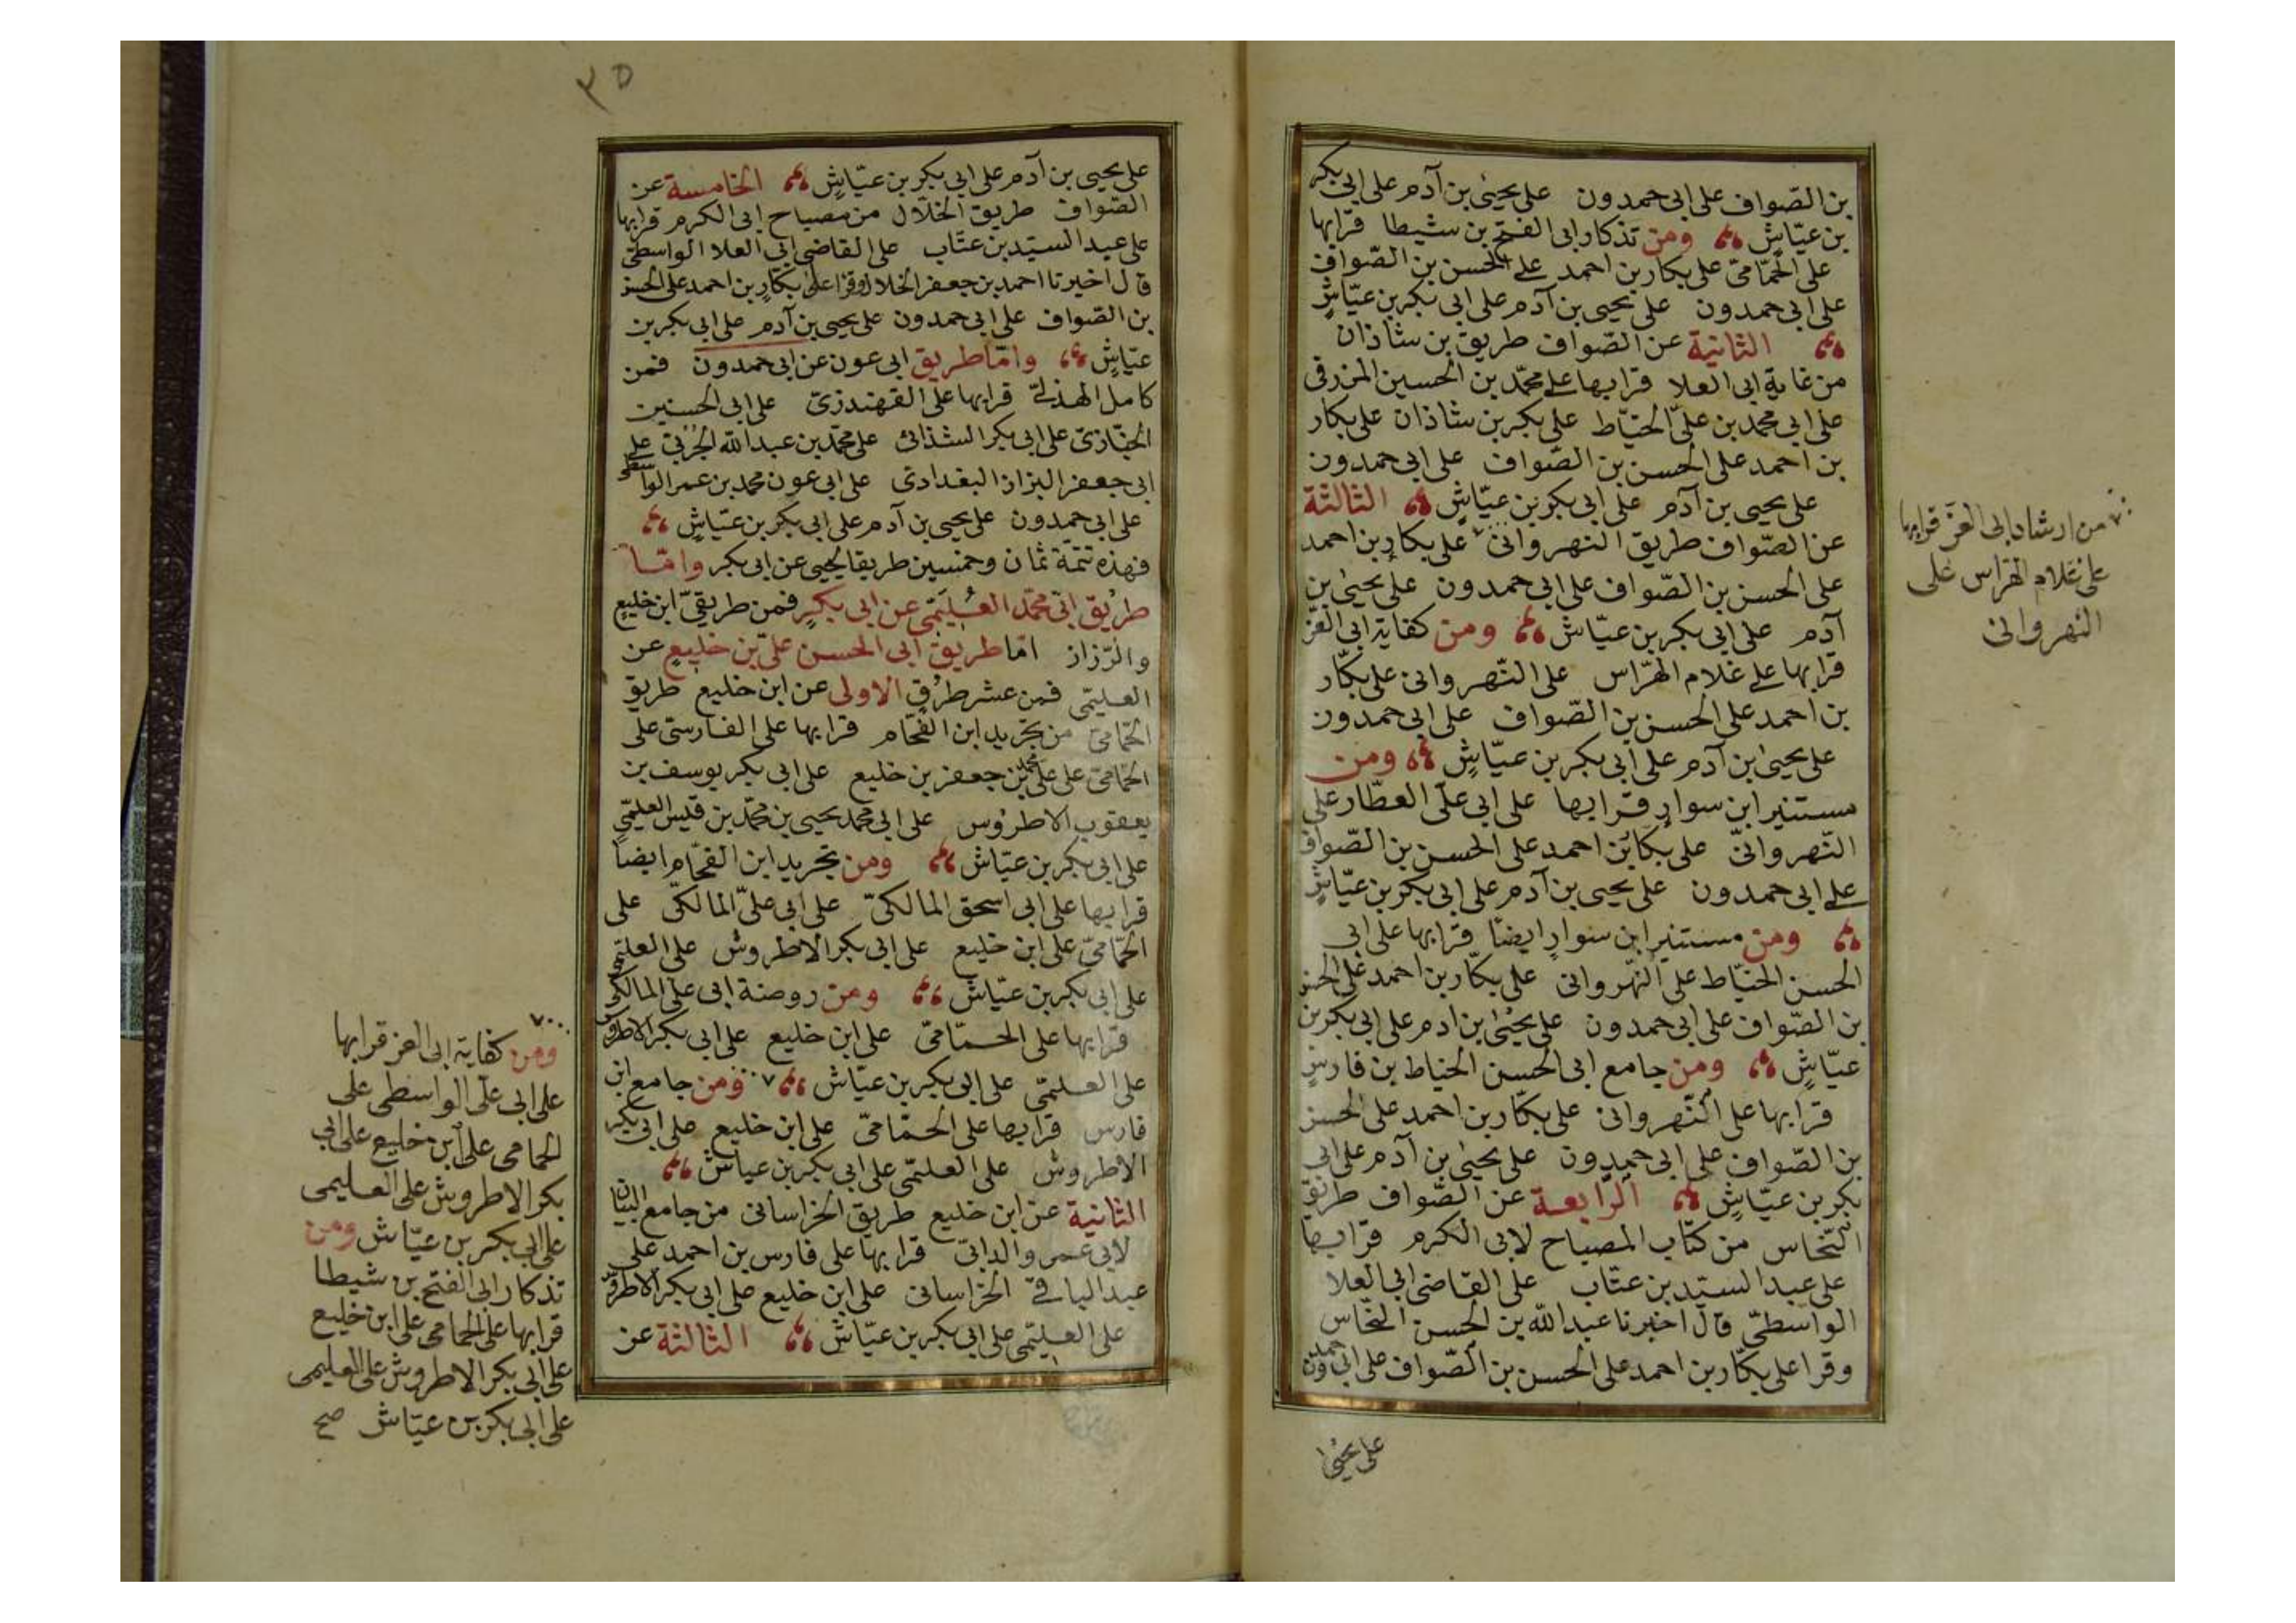 بن الصّواف على ابى حمدون على يحيى بن آدم على ابى بكر
بن عيّاشٍ ومن تذكار ابى الفتح بن شيطا قرا بها
على الحمّامىّ على بكار بن احمد على الحسن بن الصّواف
على ابى حمدون على يحيى بن آدم على ابى بكر بن عيّاشٍ
الثانية عن الصّواف طريق بن شاذان
من غاية ابى العلا قرا بها على محمّد بن الحسين المزرفى
على ابى محمد بن علىّ الخيّاط على بكر بن شاذان على بكار
بن احمد على الحسن بن الصّواف على ابى حمدون
على يحيى بن آدم على ابى بكر بن عيّاشٍ الثالثة
عن الصّواف طريق النهروانى على بكار بن احمد
على الحسن بن الصّواف على ابى حمدون على يحيى بن
آدم على ابى بكر بن عيّاش ومن كفاية ابى العزّ
قرا بها على غلام الهرّاس على النّهروانى على بكّار
بن احمد على الحسن بن الصّواف على ابى حمدون
على يحيى بن آدم على ابى بكر بن عيّاشٍ ومن
مستنير ابن سوار قرا بها على ابى على العطّار على
النّهروانىّ على بكّار بن احمد على الحسن بن الصّواف
على ابى حمدون على يحيى بن آدم على ابى بكر بن عيّاشٍ
ومن مستنير ابن سوارٍ ايضًا قرا بها على ابى
الحسن الخيّاط على النهروانى على بكّار بن احمد على الحسن
بن الصّواف على ابى حمدون على يحيى بن ادم على ابى بكر بن
عيّاشٍ ومن جامع ابى الحسن الخياط بن فارسٍ
قرا بها على النّهروانى على بكّار بن احمد على الحسن
بن الصّواف على ابى حمدون على يحيى بن آدم على ابى
بكر بن عيّاشٍ الرّابعة عن الصّواف طريق
النّخاس من كتاب المصباح لابى الكرم قرا بها
على عبد السيّد بن عتّاب على القاضى ابى العلا
الواسطىّ قال اخبرنا عبد الله بن الحسن النخّاس
وقرا على بكّار بن احمد على الحسن بن الصّواف على ابى حمدون
على يحيى
من ارشاد ابى العزّ قرا بها
على غلام الهراس على
النهروانى
٣٥
على يحيى بن آدم على ابى بكر بن عيّاشٍ الخامسة عن
الصّواف طريق الخلّال من مصباح ابى الكرم قرا بها
على عبد السيّد بن عتّاب على القاضى ابى العلا الواسطىّ
قال اخبرنا احمد بن جعفر الخلال وقرا على بكّارٍ بن احمد على الحسن
بن الصّواف على ابى حمدون على يحيى بن آدم على ابى بكر بن
عيّاشٍ وامّا طريق ابى عون عن ابى حمدون فمن
كامل الهذلىّ قرا بها على القهندزىّ على ابى الحسين
الخبّازىّ على ابى بكر الشذائى على محمّد بن عبد الله الحُرْبىّ على
ابى جعفر البزاز البغدادى على ابى عون محمد بن عمر الواسطى
على ابى حمدون على يحيى بن آدم على ابى بكر بن عيّاشٍ
فهذه تتمّة ثمان وخمسين طريقا ليحيى عن ابى بكر وامّا
طريق ابى محمّد العُلَيمّى عن ابى بكرٍ فمن طريقىّ ابن خليعٍ
والرّزاز امّا طريق ابى الحسن علىّ بن خليعٍ عن
العليمّى فمن عشر طرقٍ الاولى عن ابن خليع طريق
الحمّامىّ من تجريد ابن الفحّام قرا بها على الفارسىّ على
الحمّامىّ على على بن محمد بن جعفر بن خليع على ابى بكر يوسف بن
يعقوب الاطرُوش على ابى محمد يحيى بن محمّد بن قيس العليمّى
على ابى بكر بن عيّاش ومن تجريد ابن الفحّام ايضًا
قرا بها على ابى اسحق المالكىّ على ابى علىّ المالكىّ على
الحمّامىّ على ابن خليع على ابى بكر الاطروش على العليمّى
على ابى بكر بن عيّاش ومن روضة ابى على المالكى
قرا بها على الحمّامىّ على ابن خليع على ابى بكر الاطروش
على العليمّى على ابى بكر بن عيّاش ومن جامع ابن
فارس قرا بها على الحمّامىّ على ابن خليع على ابى بكر
الاطروش على العليمّى على ابى بكر بن عياش
الثانية عن ابن خليع طريق الخراسانى من جامع البيان
لابى عمرو الدانىّ قرا بها على فارس بن احمد على
عبد الباقىّ الخراسانى على ابن خليع على ابى بكر الاطروش
على العليمّى على ابى بكر بن عيّاش الثالثة عن
ومن كفاية ابى العز قرا بها
على ابى على الواسطى على
الحمامى على ابن خليع على ابى
بكر الاطروش على العليمى
على ابى بكر بن عيّاش ومن
تذكار ابى الفتح بن شيطا
قرا بها على الحمامى على ابن خليع
على ابى بكر الاطروش على العليمى
على ابى بكر بن عيّاش صح